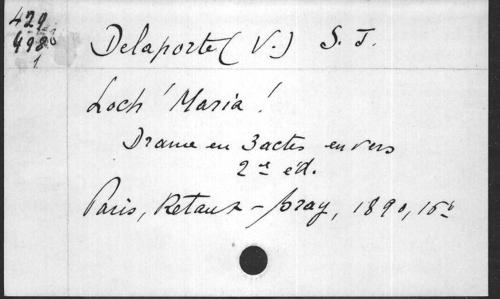 429
498
1
Delaporte (V.) S. J.
Loch' Maria!
Drame en 3 actes en vers
2e éd.
Paris, Retaux-Bray, 1890, 16°